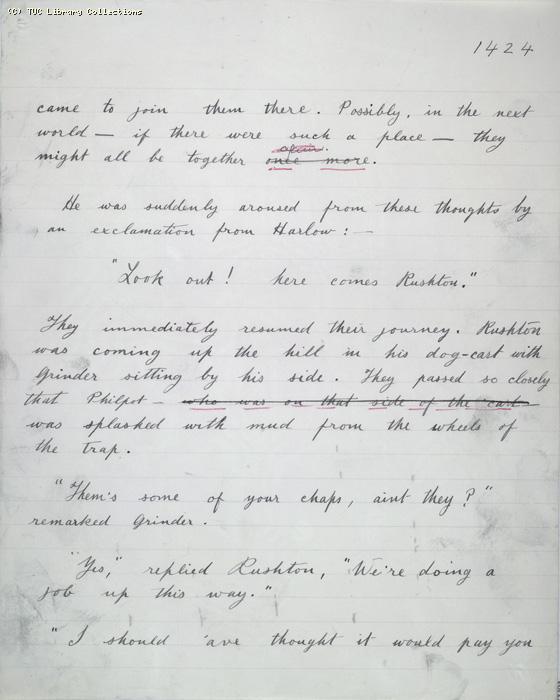 (C) TUC Library Collections
1424
came to join them there. Possibly, in the next
world — if there were such a place — they
again.
might all be together once more.
He was suddenly aroused from these thoughts by
an exclamation from Harlow: —
"Look out! here comes Rushton."
They immediately resumed their journey. Rushton
was coming up the hill in his dog-cart with
Grinder sitting by his side. They passed so closely
that Philpot — who was on that side of the cart —
was splashed with mud from the wheels of
the trap.
"Them's some of your chaps, aint they?"
remarked Grinder.
"Yes," replied Rushton, "We're doing a
job up this way."
"I should 'ave thought it would pay you